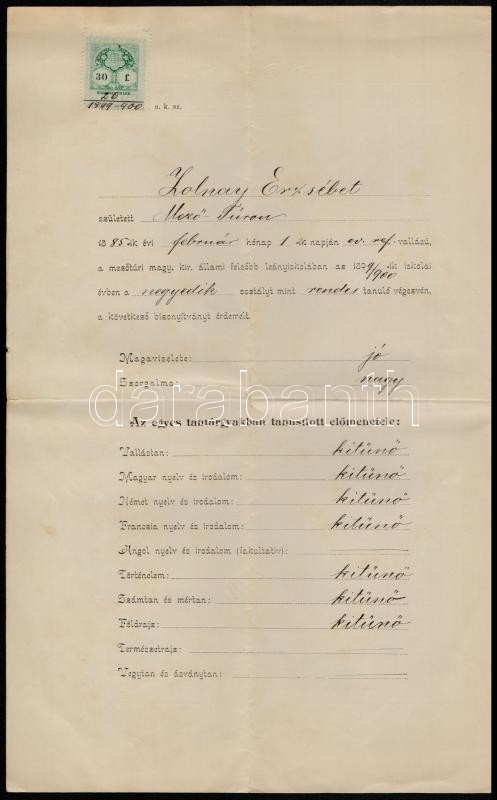 30 f
20
1899-900. n. k. sz.
Zolnay Erzsébet
született Mező-Túron
1885-ik évi február hónap 1-ik napján ev. ref. vallású,
a mezőtúri magy. kir. állami felsőbb leányiskolában az 1899/900-ik iskolai
évben a negyedik osztályt mint rendes tanuló végezvén,
a következő bizonyítványt érdemelt.
Magaviselete: jó
Szorgalma: nagy
darabanth
Az egyes tantárgyakban tanusított előmenetele:
Vallástan: kitünő
Magyar nyelv és irodalom: kitünő
Német nyelv és irodalom: kitünő
Franczia nyelv és irodalom: kitünő
Angol nyelv és irodalom (fakultatív):
Történelem: kitünő
Számtan és mértan: kitünő
Földrajz: kitünő
Természetrajz:
Vegytan és ásványtan: